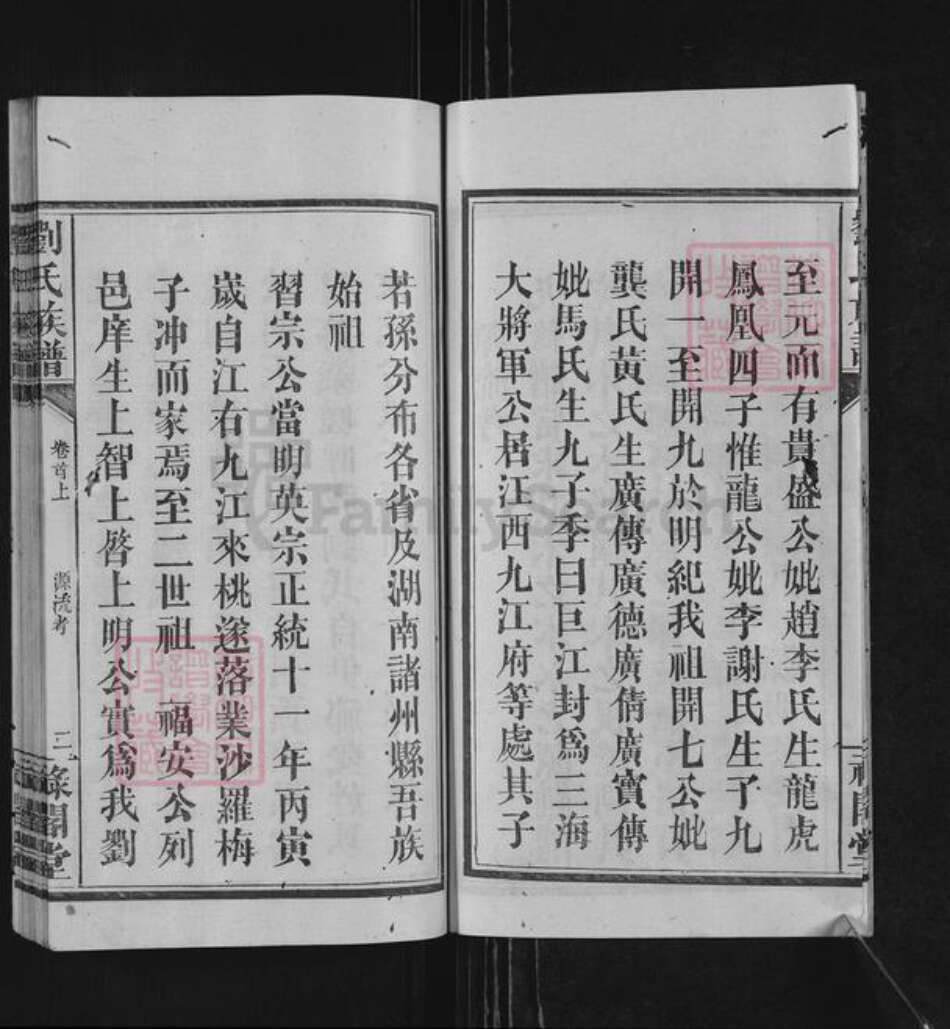 至元而有貴盛公妣趙李氏生龍虎
鳳凰四子惟龍公妣李謝氏生子九
開一至開九於明紀我祖開七公妣
龔氏黃氏生廣傳廣德廣倩廣實傳
妣馬氏生九子季曰巨江封為三海
大將軍公居江西九江府等處其子
若孫分布各省及湖南諸州縣吾族
始祖
習宗公當明英宗正統十一年丙寅
歲自江右九江來桃遂落業沙羅梅
子冲而家焉至二世祖 福安公列
邑庠生上智上啓上明公實為我劉
劉氏族譜 卷首上 源流考 三 祿閣堂
FamilySearch